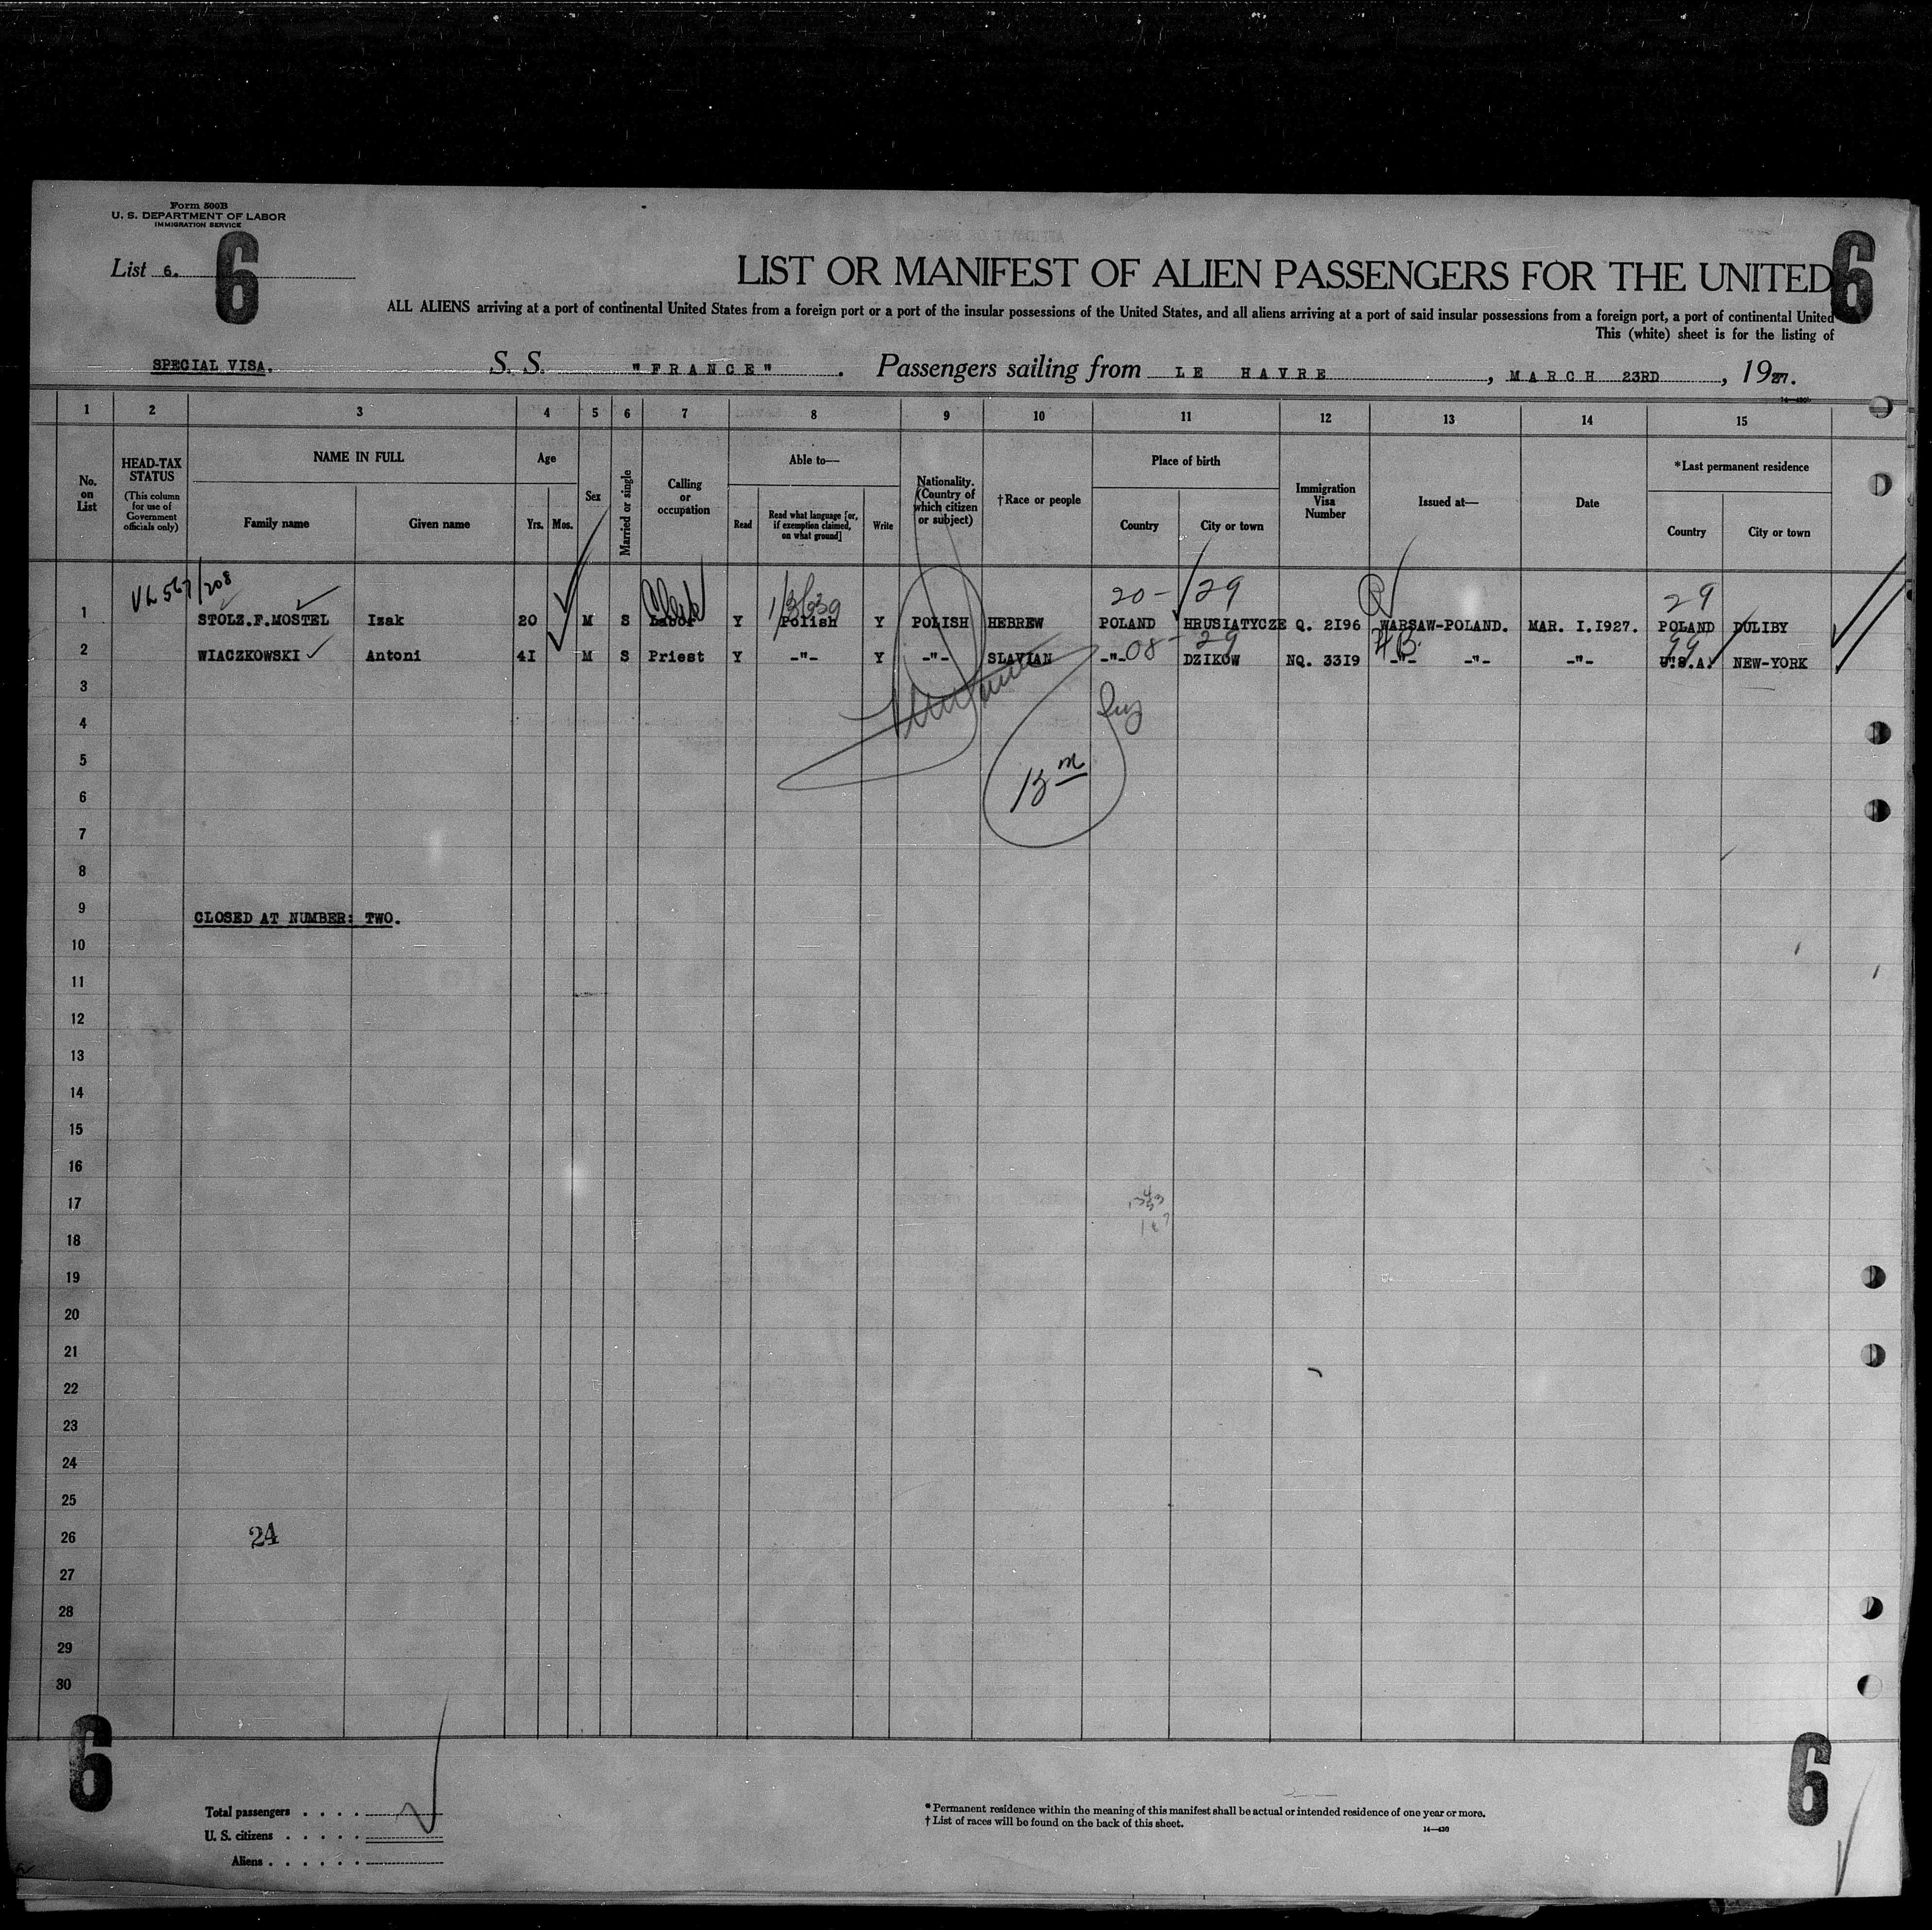 Form 500B
U. S. DEPARTMENT OF LABOR
IMMIGRATION SERVICE
List 6.
6
6
LIST OR MANIFEST OF ALIEN PASSENGERS FOR THE UNITED
ALL ALIENS arriving at a port of continental United States from a foreign port or a port of the insular possessions of the United States, and all aliens arriving at a port of said insular possessions from a foreign port, a port of continental United
This (white) sheet is for the listing of
SPECIAL VISA. S. S. "FRANCE". Passengers sailing from LE HAVRE, MARCH 23RD, 1927.
1 2 3 4 5 6 7 8 9 10 11 12 13 14 15
No. on List
HEAD-TAX STATUS (This column for use of Government officials only)
NAME IN FULL
Family name Given name
Age
Yrs. Mos.
Sex
Married or single
Calling or occupation
Able to—
Read
Read what language [or, if exemption claimed, on what ground]
Write
Nationality. (Country of which citizen or subject)
†Race or people
Place of birth
Country City or town
Immigration Visa Number
Issued at—
Date
*Last permanent residence
Country City or town
20- 29 29
1 STOLZ.F.MOSTEL Izak 20 M S Labor Clerk Y Polish Y POLISH HEBREW POLAND HRUSIATYCZE Q. 2I96 WARSAW-POLAND. MAR. I.I927. POLAND DULIBY
08- 29 4B. 99
2 WIACZKOWSKI Antoni 4I M S Priest Y -"- Y -"- SLAVIAN -"- DZIKOW NQ. 33I9 -"- -"- -"- U.S.A. NEW-YORK
3
4
5
6
7
8
9 CLOSED AT NUMBER: TWO.
10
11
12
13
14
15
16
17
18
19
20
21
22
23
24
25
26 24
27
28
29
30
6
6
Total passengers . . . .
U. S. citizens . . . . .
Aliens . . . . . .
* Permanent residence within the meaning of this manifest shall be actual or intended residence of one year or more.
† List of races will be found on the back of this sheet.
14—430